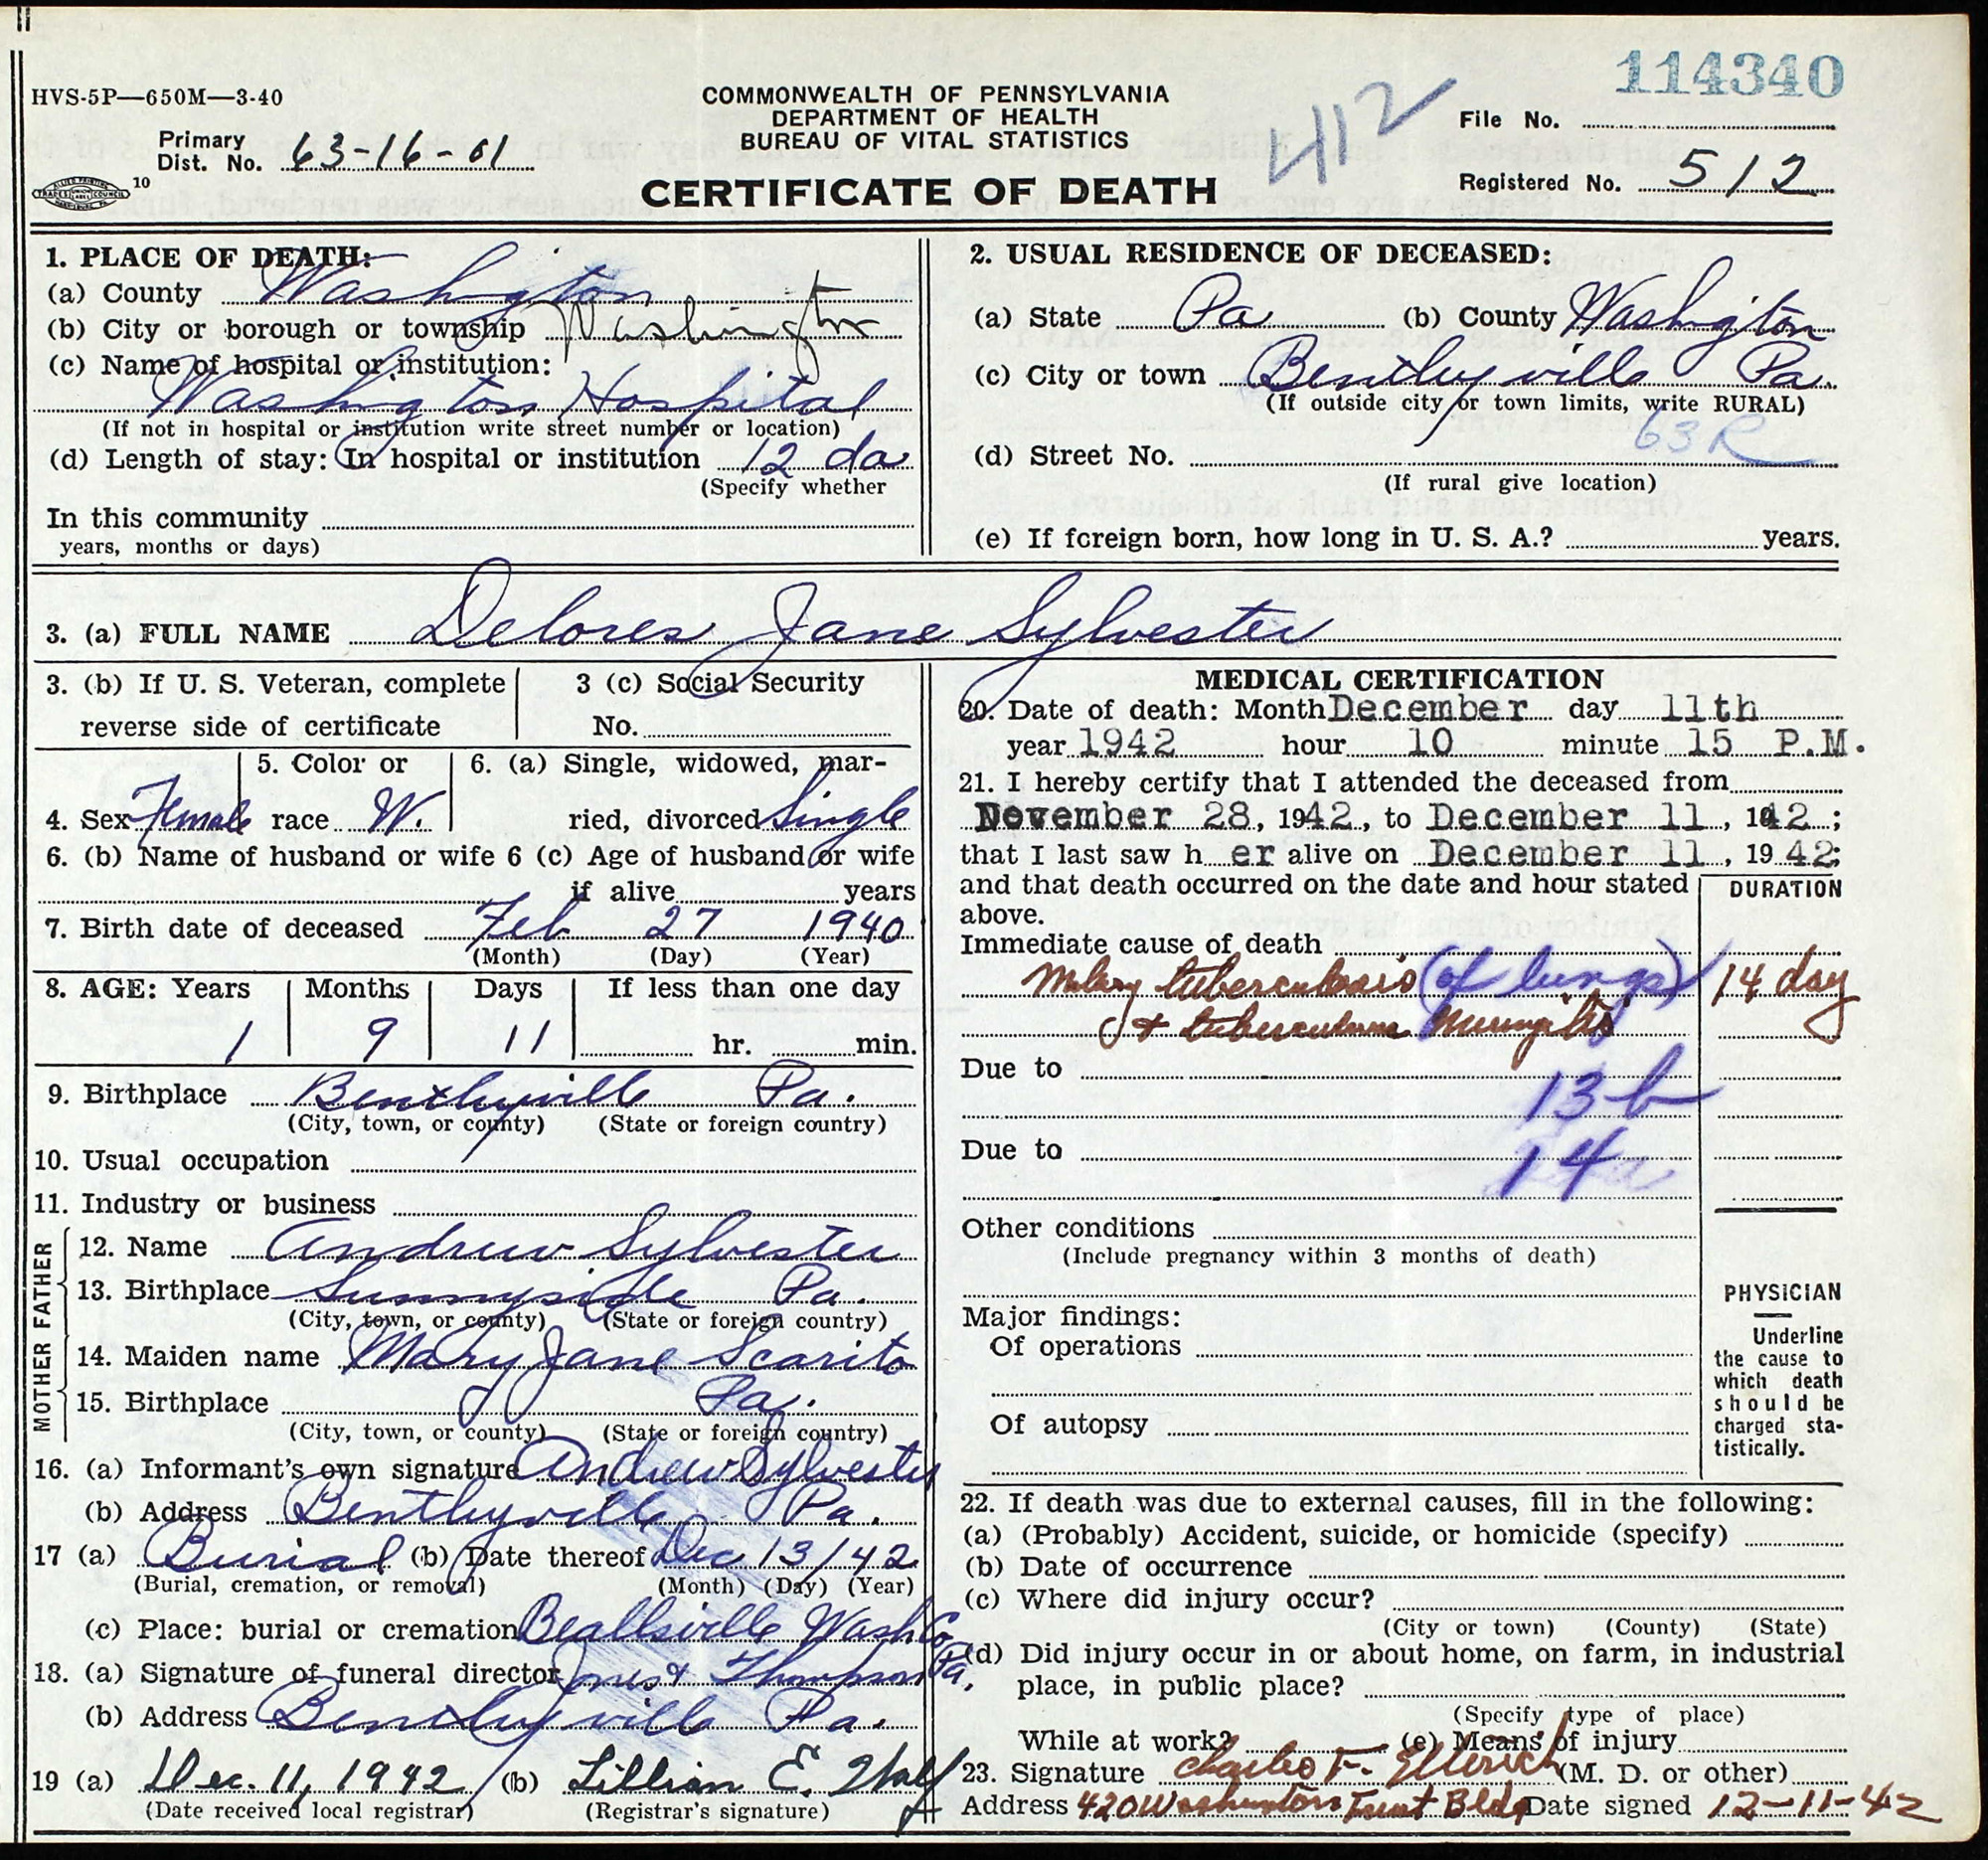 114340
HVS-5P—650M—3-40
COMMONWEALTH OF PENNSYLVANIA
DEPARTMENT OF HEALTH
BUREAU OF VITAL STATISTICS
412
File No.
Primary
Dist. No. 63-16-01
10
CERTIFICATE OF DEATH
Registered No. 512
1. PLACE OF DEATH:
(a) County Washington
(b) City or borough or township Washington
(c) Name of hospital or institution:
Washington Hospital
(If not in hospital or institution write street number or location)
(d) Length of stay: In hospital or institution 12 da
(Specify whether
In this community
years, months or days)
2. USUAL RESIDENCE OF DECEASED:
(a) State Pa (b) County Washington
(c) City or town Bentleyville Pa.
(If outside city or town limits, write RURAL)
63R
(d) Street No.
(If rural give location)
(e) If foreign born, how long in U. S. A.? years.
3. (a) FULL NAME Delores Jane Sylvester
3. (b) If U. S. Veteran, complete
reverse side of certificate
3 (c) Social Security
No.
4. Sex Female
5. Color or
race W.
6. (a) Single, widowed, mar-
ried, divorced Single
6. (b) Name of husband or wife 6 (c) Age of husband or wife
if alive years
7. Birth date of deceased Feb 27 1940
(Month) (Day) (Year)
8. AGE: Years Months Days If less than one day
1 9 11 hr. min.
9. Birthplace Bentleyville Pa.
(City, town, or county) (State or foreign country)
10. Usual occupation
11. Industry or business
FATHER
12. Name Andrew Sylvester
13. Birthplace Sunnyside Pa.
(City, town, or county) (State or foreign country)
MOTHER
14. Maiden name Mary Jane Scarito
15. Birthplace Pa.
(City, town, or county) (State or foreign country)
16. (a) Informant's own signature Andrew Sylvester
(b) Address Bentleyville Pa.
17 (a) Burial (b) Date thereof Dec 13/42
(Burial, cremation, or removal) (Month) (Day) (Year)
(c) Place: burial or cremation Beallsville Wash Co Pa.
18. (a) Signature of funeral director Jones & Thompson
(b) Address Bentleyville Pa.
19 (a) Dec. 11, 1942 (b) Lillian E.
(Date received local registrar) (Registrar's signature)
MEDICAL CERTIFICATION
20. Date of death: Month December day 11th
year 1942 hour 10 minute 15 P.M.
21. I hereby certify that I attended the deceased from
November 28, 1942, to December 11, 1942;
that I last saw h er alive on December 11, 1942;
and that death occurred on the date and hour stated
above.
DURATION
Immediate cause of death
Miliary tuberculosis (of lungs) 14 day
& tuberculous Meningitis
Due to
13 b
Due to
14
Other conditions
(Include pregnancy within 3 months of death)
Major findings:
Of operations
Of autopsy
PHYSICIAN
Underline
the cause to
which death
should be
charged sta-
tistically.
22. If death was due to external causes, fill in the following:
(a) (Probably) Accident, suicide, or homicide (specify)
(b) Date of occurrence
(c) Where did injury occur?
(City or town) (County) (State)
(d) Did injury occur in or about home, on farm, in industrial
place, in public place?
(Specify type of place)
While at work? (e) Means of injury
23. Signature Charles F. Ellerich (M. D. or other)
Address 420 Washington Trust Bldg Date signed 12-11-42